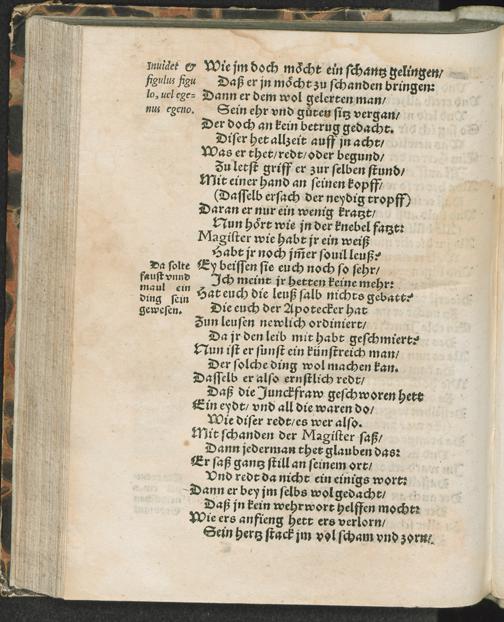 Inuidet &
figulus figu
lo, uel ege-
nus egeno.
Wie jm doch möcht ein schantz gelingen/
Daß er jn möcht zu schanden bringen:
Dann er dem wol gelerten man/
Sein ehr vnd güten sitz vergan/
Der doch an kein betrug gedacht.
Diser het allzeit auff jn acht/
Was er thet/redt/oder begund/
Zu letst griff er zur selben stund/
Mit einer hand an seinen kopff/
(Dasselb ersach der neydig tropff)
Daran er nur ein wenig kratzt/
Nun hört wie jn der knebel fatzt:
Magister wie habt jr ein weiß
Habt jr noch jm̃er souil leuß?
Da solte
faust vnnd
maul ein
ding sein
gewesen.
Ey beissen sie euch noch so sehr/
Ich meint jr hetten keine mehr:
Hat euch die leuß salb nichts gebatt?
Die euch der Apotecker hat
Zun leusen newlich ordiniert/
Da jr den leib mit habt geschmiert?
Nun ist er sunst ein künstreich man/
Der solche ding wol machen kan.
Dasselb er also ernstlich redt/
Daß die Junckfraw geschworen hett
Ein eydt/ vnd all die waren do/
Wie diser redt/es wer also.
Mit schanden der Magister saß/
Dann jederman thet glauben das:
Er saß gantz still an seinem ort/
Vnd redt da nicht ein einigs wort:
Dann er bey jm selbs wol gedacht/
Daß jn kein wehrwort helffen mocht:
Wie ers anfieng hett ers verlorn/
Sein hertz stack jm vol scham vnd zorn.